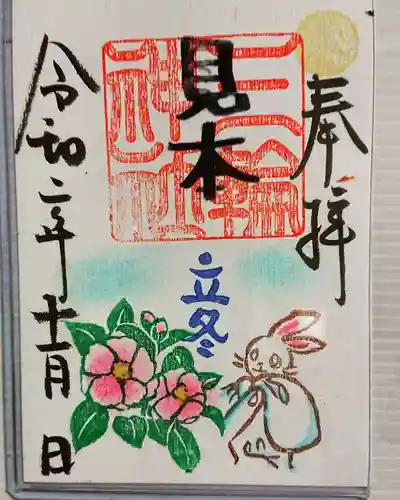 奉拝
三輪神社
見本
立冬
令和二年十一月 日